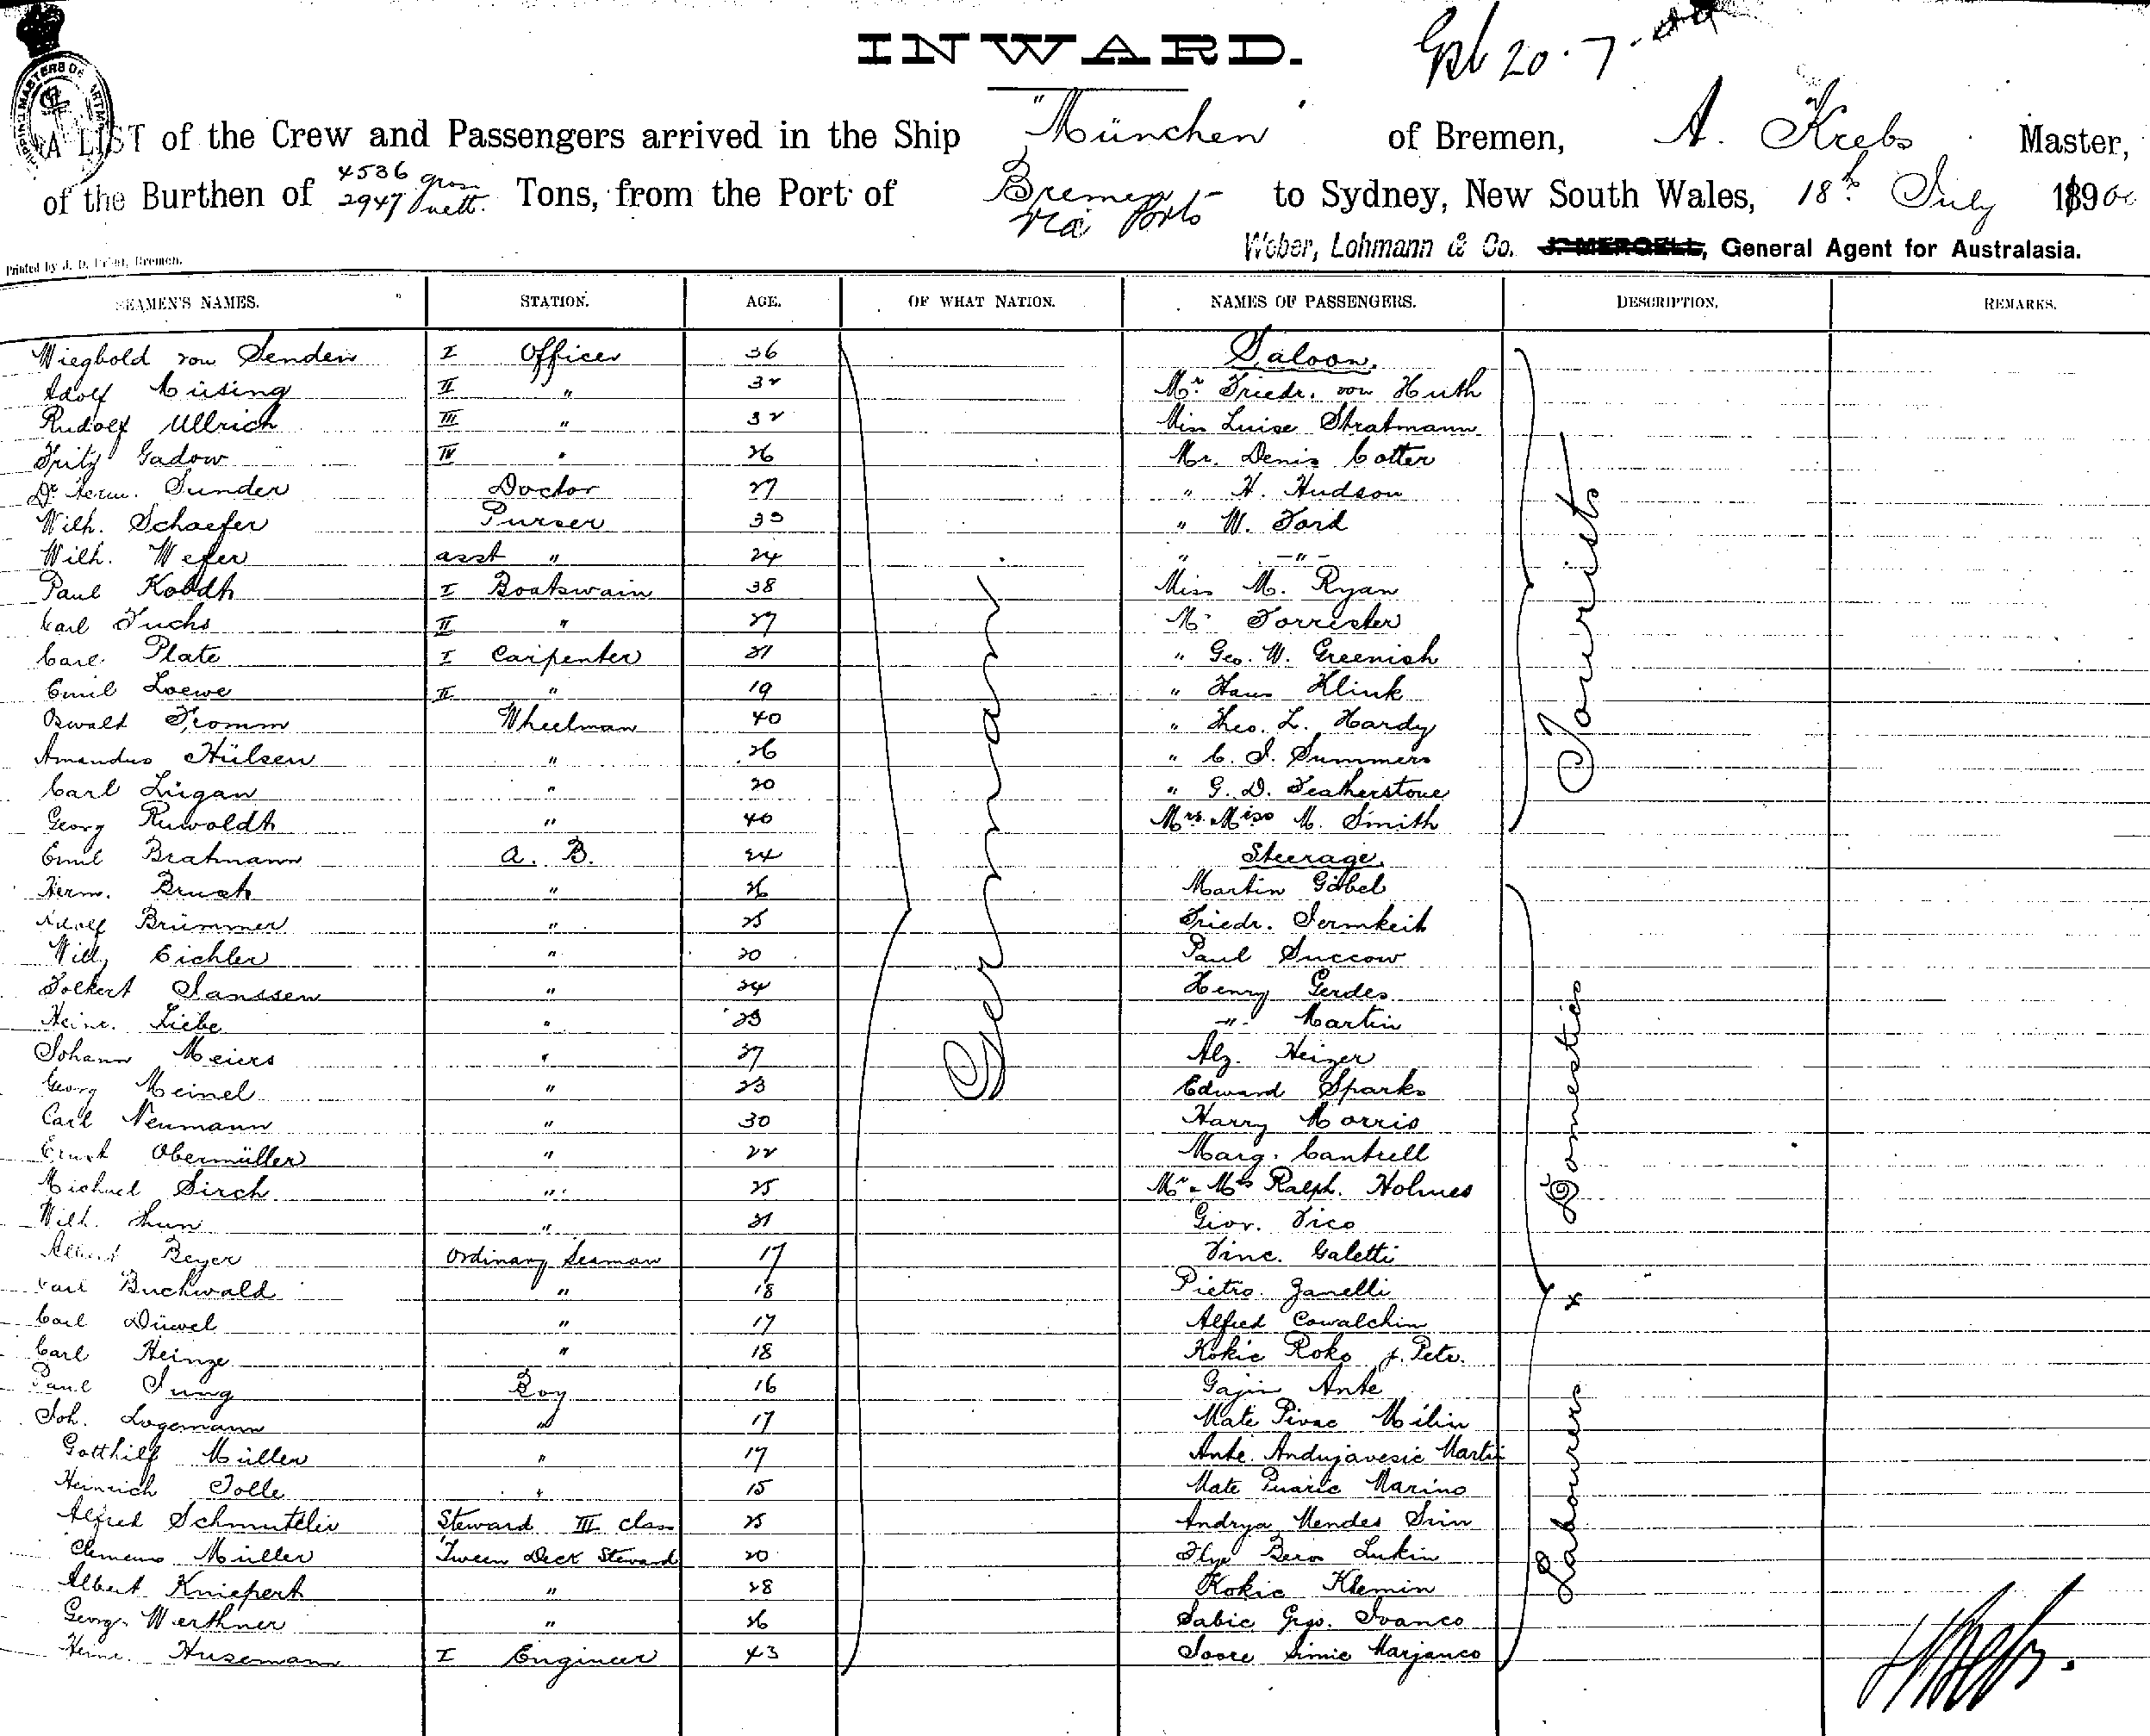 INWARD.
20.7.
A LIST of the Crew and Passengers arrived in the Ship "München" of Bremen, A. Krebs Master,
of the Burthen of 4536 gross 2947 nett. Tons, from the Port of Bremen via Ports to Sydney, New South Wales, 18th July 1890
Weber, Lohmann & Co. J. MERGELL, General Agent for Australasia.
Printed by J. D. Bremen.
SEAMEN'S NAMES. STATION. AGE. OF WHAT NATION. NAMES OF PASSENGERS. DESCRIPTION. REMARKS.
Wiegbold von Senden I Officer 36 Saloon.
Adolf Müsing II " 32 Mr. Friedr. von Huth
Rudolf Ullrich III " 32 Miss Luise Stratmann
Fritz Gadow IV " 26 Mr. Denis Cotter
Dr. Herm. Sunder Doctor 27 " H. Hudson
Wilh. Schaefer Purser 33 " W. Ford
Wilh. Wefer asst " 24 " -"-
Paul I Boatswain 38 Miss M. Ryan
Carl Fuchs II " 27 Mr Forrester
Carl Plate I Carpenter 31 " Geo. W. Greenish
Emil Loewe II " 19 " Hans Klink
Oswald Fromm Wheelman 40 " Theo. L. Hardy
Amandus Hülsen " 26 " C. J. Summers
Carl Lügan " 20 " G. D. Featherstone
Georg Ruwoldt " 40 Mrs. Miss M. Smith
Emil Bratmann A. B. 24 Steerage.
Herm. Brust " 26 Martin Göbel
Adolf Brümmer " 25 Friedr. Jermkeit
Willy Eichler " 20 Paul Succow
Folkert Janssen " 24 Henry Gerdes
Heinr. Liebe " 23 -"- Martin
Johann Meiers " 37 Alz. Heizer
Georg Meinel " 23 Edward Sparks
Carl Neumann " 30 Harry Morris
Ernst Obermüller " 22 Marg. Cantrell
Michael Sirch " 25 Mr. Mrs Ralph. Holmes
Wilh. Thun " 31 Giov. Vico
Albert Beyer Ordinary Seaman 17 Vinc. Galetti
Carl Buchwald " 18 Pietro Zanelli
Carl Düwel " 17 Alfred Cowalchin
Carl Heinze " 18 Kokic Roko p. Pete.
Paul Jung Boy 16 Gajin Ante
Joh. Logemann " 17 Mate Pivac Milin
Gotthilf Müller " 17 Ante Andujavesic Martin
Heinrich Tolle " 15 Mate Puaric Marino
Alfred Steward III class 25 Andrya Mendes Srin
Clemens Müller 'Tween Deck Steward 20 Ilya Bero Lukin
Albert Kniepert " 28 Kokic Klemin
George Werthner " 26 Sabic Grgo. Ivanco
Heinr. Husemann I Engineer 43 Simic Marjanco
German
Tourists
Domestics
&
Labourers